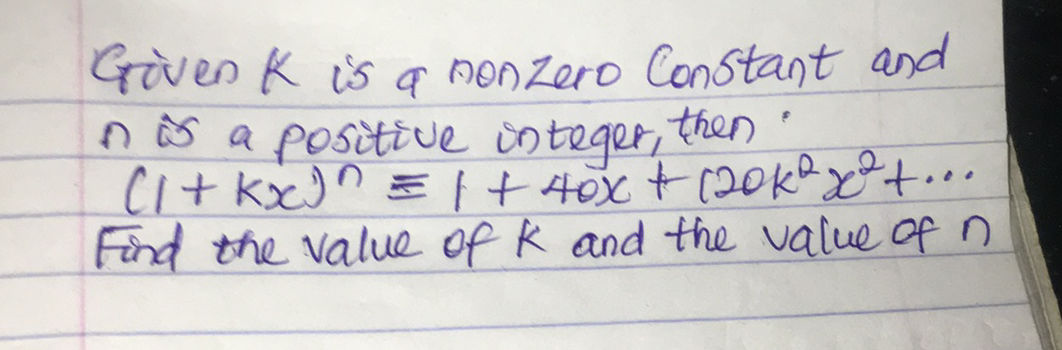 Given K is a nonzero Constant and
n is a positive integer, then:
(1 + Kx)ⁿ ≡ 1 + 40x + 120k²x² + ...
Find the value of k and the value of n